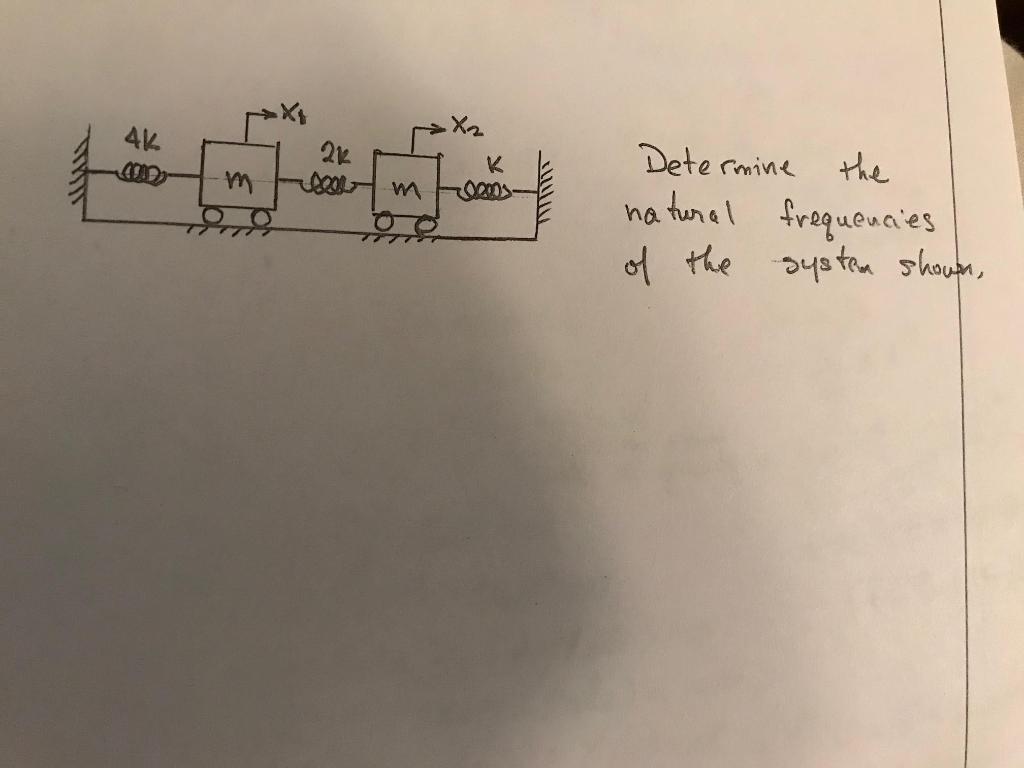 4K
X1
2K
X2
K
m
m
Determine the
natural frequencies
of the system shown,